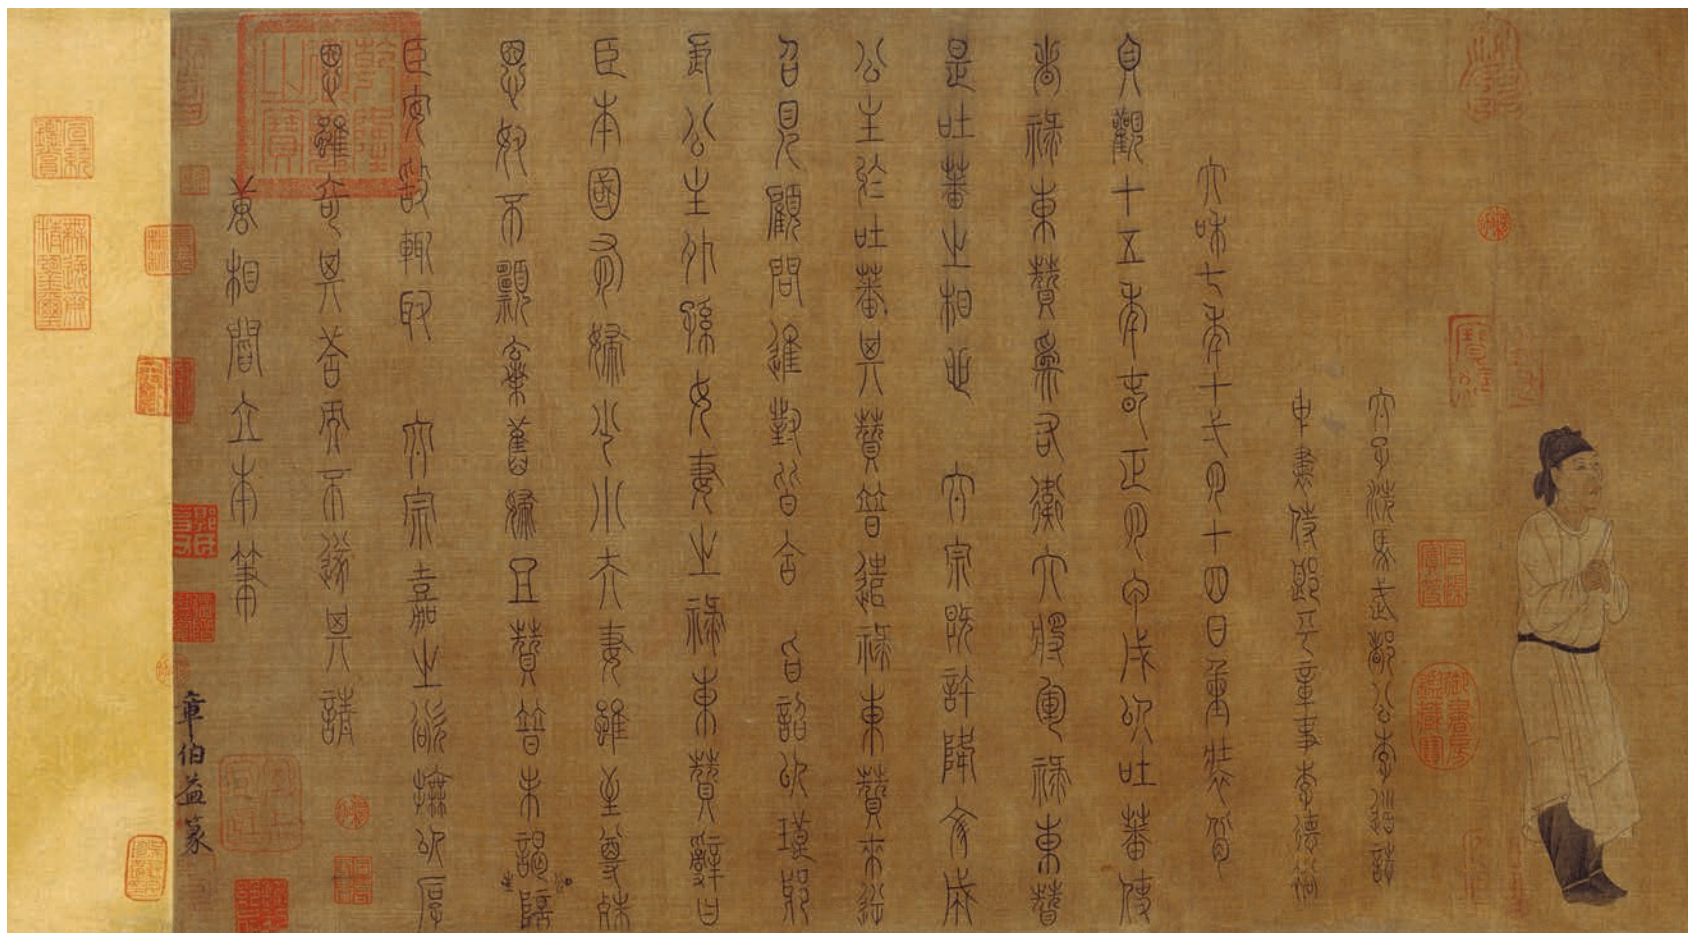 太子洗馬武都公李道誌
中書侍郎平章事李德裕
太和七年十一月十四日重裝背
貞觀十五年春正月甲戌以吐蕃使
者祿東贊為右衛大將軍祿東贊
是吐蕃之相也 太宗既許降文成
公主於吐蕃其贊普遣祿東贊來逆
召見顧問進對皆合 旨詔以琅琊
長公主外孫女妻之祿東贊辭曰
臣本國有婦少小夫妻雖至尊殊
恩奴不願棄舊婦且贊普未謁陪
臣安敢輒取 太宗嘉之欲撫以厚
恩雖奇其答而不遂其請
唐相閻立本筆
章伯益篆
乾隆鑑賞